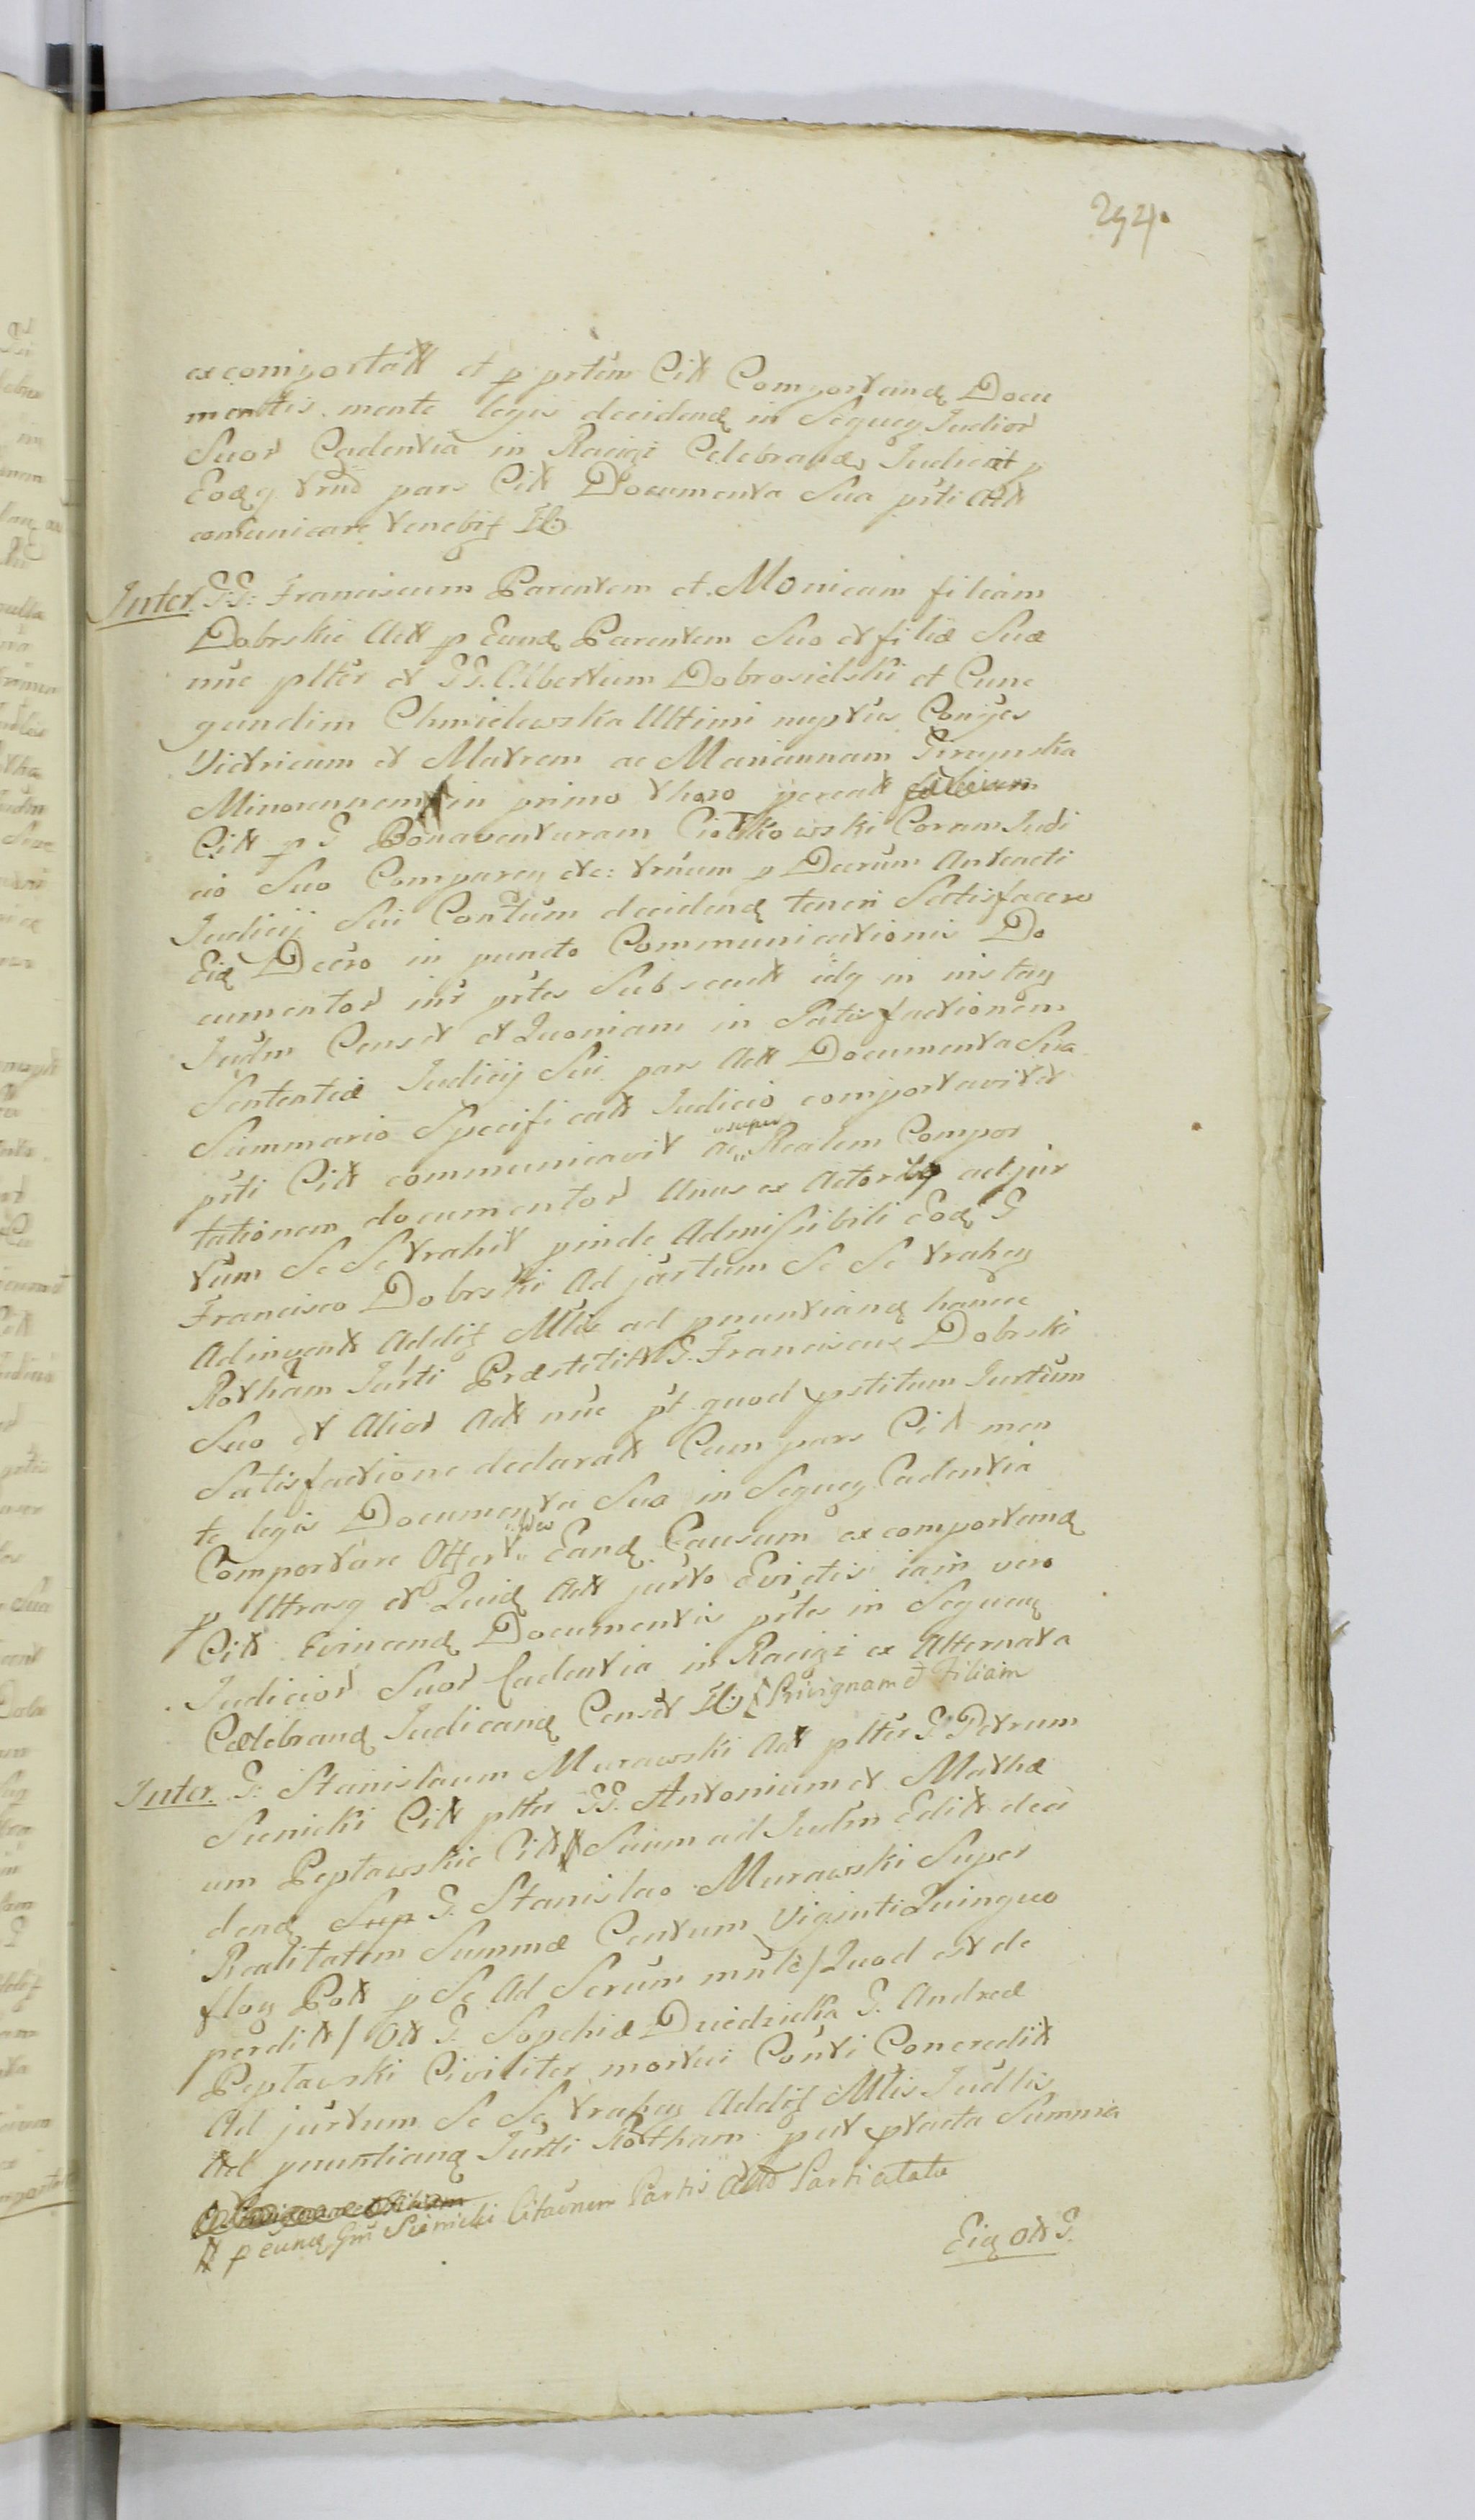 294.
excomportatt et p prtem Citt Comportand Docu
mentis mente legis decidend in Sequen Judior
Suor Cadentia in Raciąż Celebrand Judicat p
Eodq trno pars Citt Documenta Sua prti Att
comunicare tenebit Hb
Inter GG: Franciscum Parentem et Monicam filiam
Dobrskie Act p Eund Parentem Suo et filiæ Suæ
nnie plter et GG. Albertum Dobrosielski et Cune
gundim Chmielewska Ultimi nuptus Conjges
Victricum et Matrem ac Mariannam Girzynska
Minorennem in primo thoro procatt
Citt p G Bonaventuram Ciołkowski Coram Judi
cio Suo Comparen etc: trnum p Decrum Anteacti
Judicij Sui Contum decidend teneri Satisfacere
Eid Decro in puncto Communicationis Do
cumentor intr prtes Subsecutt idq in instan
Judm Censet et Quoniam in Satisfactionem
Sententiæ Judicij Sui pars Act Documenta Sua
Summario Specificatt Judicio comportavit et
prti Citt communicavit ac super Realem Compor
tationem documentor Unus ex Actoribq ad jur
tum Se Se trahit pinde Admissibili Eod G
Francisco Dobrski Ad jurtum Se Se trahen
Adinventt Addit Mtis ad pnuntiand hance
Rotham Jurti Præstitit G. Franciscus Dobrski
Suo et Alior Act nnie pt quod pstitum Jurtum
Satisfactione declaratt Cum pars Citt men
te legis Documenta Sua in Sequen Cadentia
Comportare Offert Ideo Eand Causam excomportand
p Utrasq et Quid Act jurto Evictis iam vero
Citt Evincend Documentis prtes in Sequen
Judicior Suor Cadentia in Raciąż ex Alternata
Celebrand Judicand Censet Hb Privignam et Filiam
Inter G: Stanislaum Murawski Act plter G Petrum
Sienicki Citt plter GG. Antonium et Mathæ
um Peptawskie Citt Suum ad Judm Editt deci
dend G. Stanislao Murawski Super
Realitatem Summæ Centum Viginti Quinque
flon Pott p Se Ad Serum mulc / Quod est de
perditt / Ott G. Sophiæ Dziedzicka G. Andreæ
Peptawski Civiliter mortui Conti Concreditt
Ad jurtum Se Se trahen Addit Mtis Judlis
Ad pnuntiand Jurti Rotham put ptacta Summa
p eund Gm Sienicki Citaonem Partis
Eid Ott G.